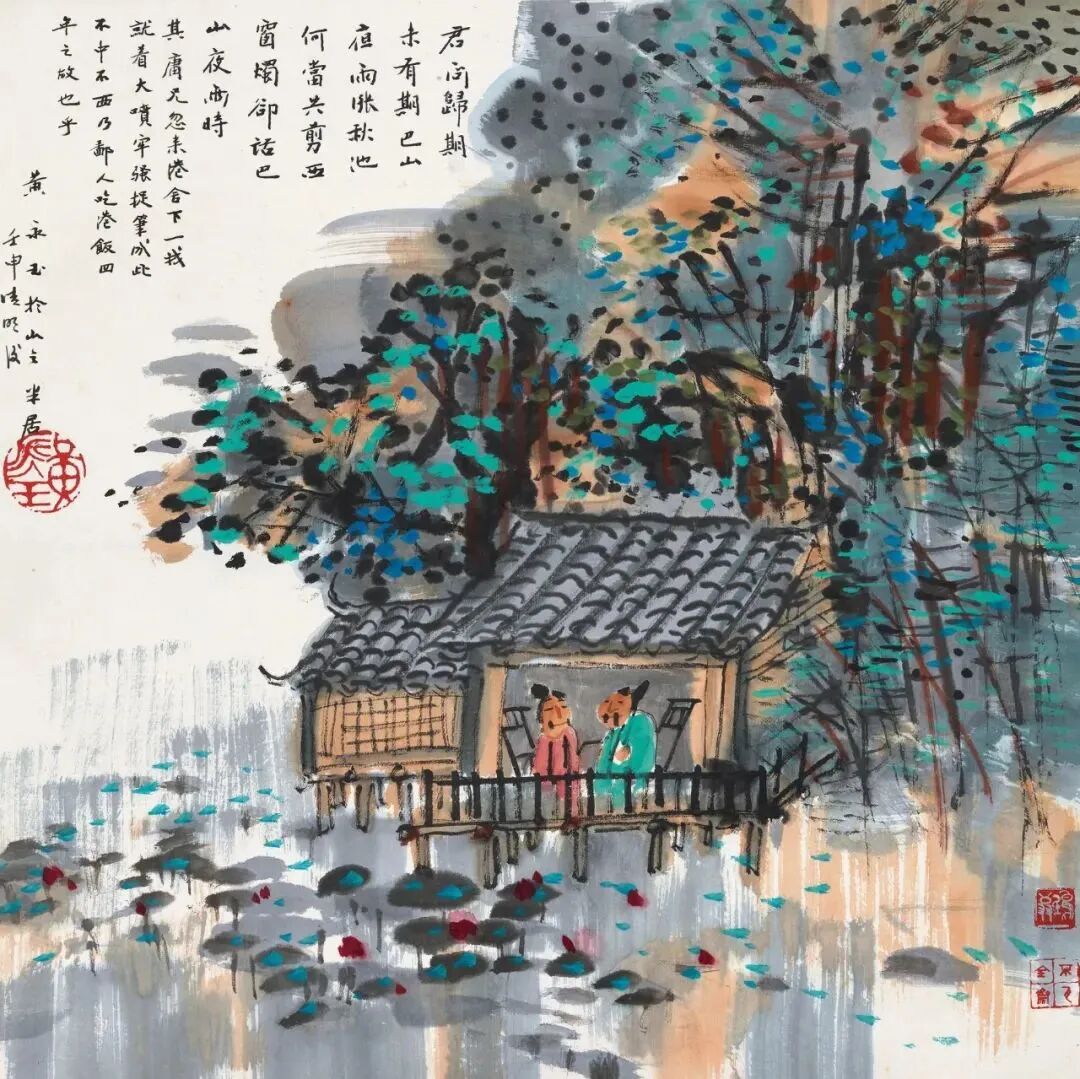 君问歸期
未有期巴山
夜雨漲秋池
何當共剪西
窗燭卻話巴
山夜雨時
其庸兄忽来港舍下一
就着大噴牢騷捉筆成此
不中不西乃鄙人吃港飯四
年之故也乎
黄永玉於山之半居
壬申清明後
黄永玉